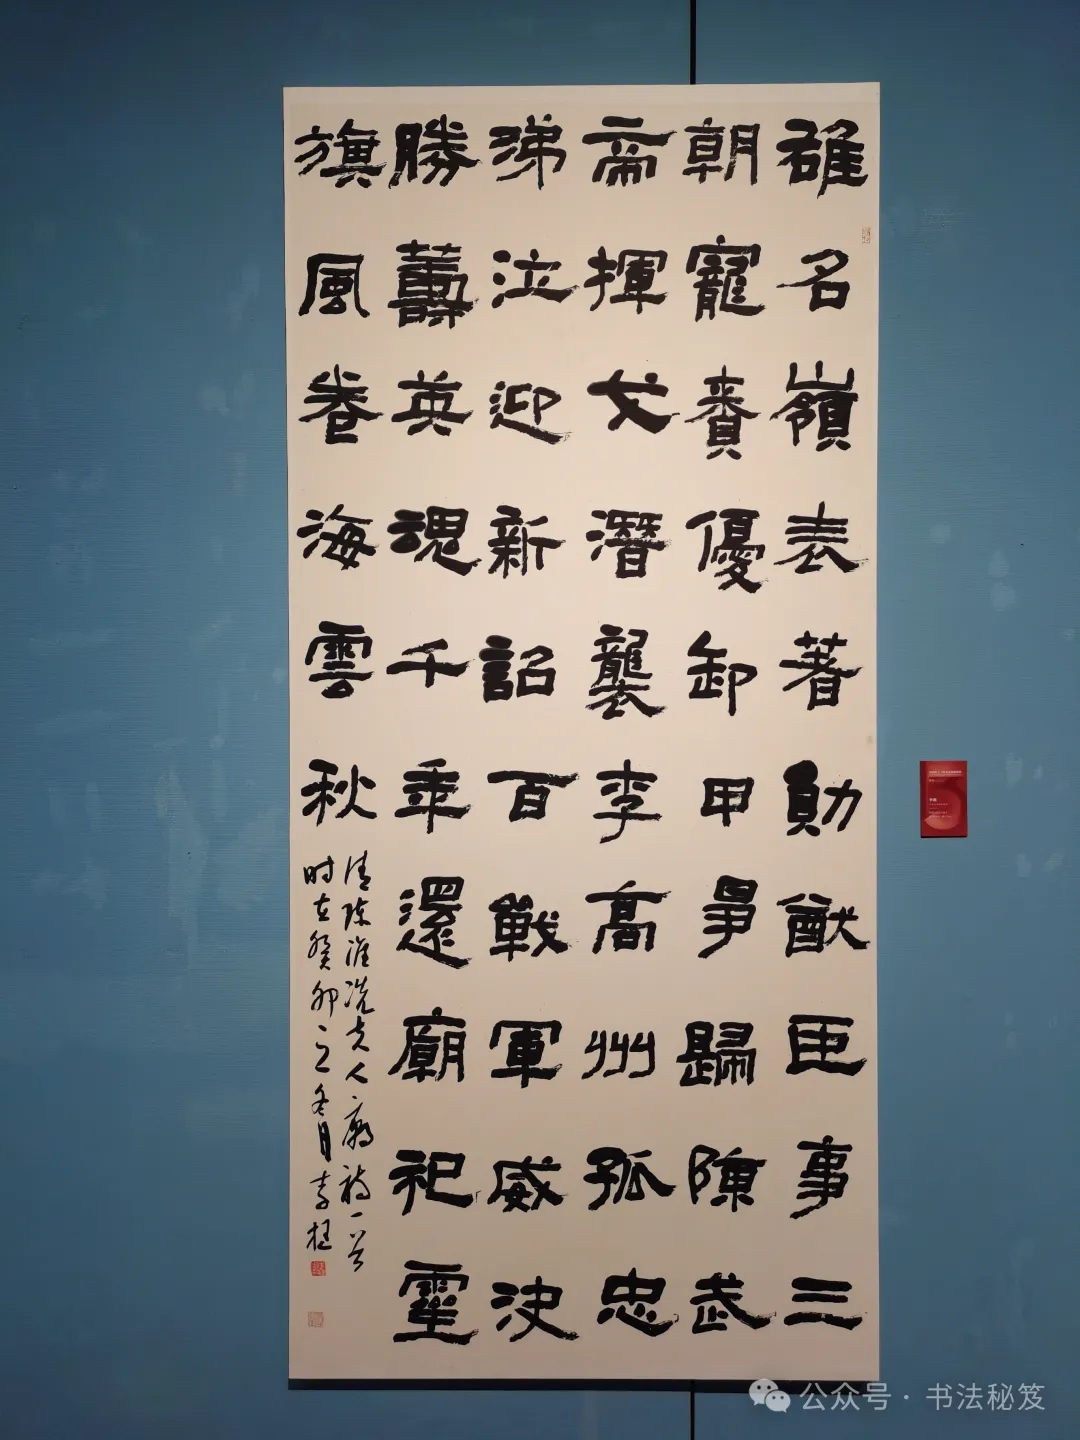 雄名嶺表著勛猷臣事三
朝寵賚優卸甲爭歸陳武
帝揮戈潛襲李高州孤忠
涕泣迎新詔百戰軍威決
勝籌英魂千年還廟祀靈
旗風卷海雲秋
清陳淮冼夫人廟詩一首
时在癸卯之冬月李
公众号·书法秘笈